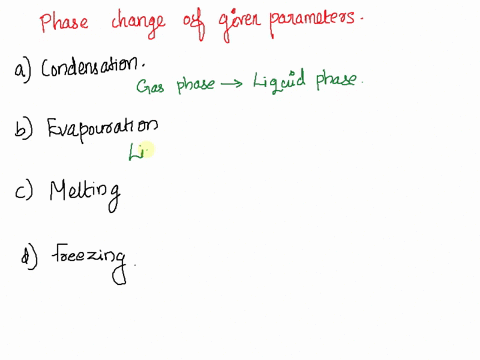 Phase change of given parameters.
a) Condensation.
Gas phase → Liquid phase.
b) Evapouration
Li
c) Melting
d) freezing.